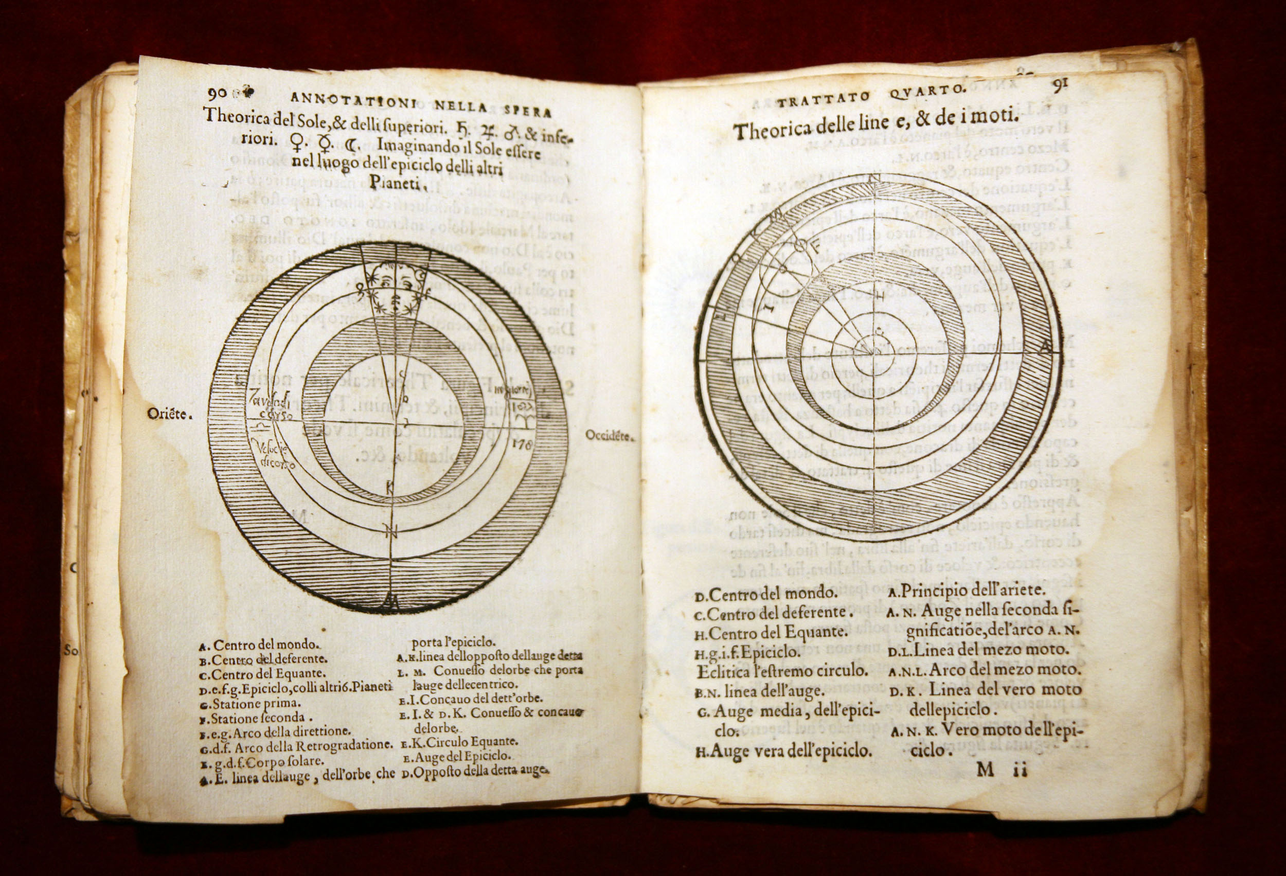 90
ANNOTATIONI NELLA SPERA
Theorica del Sole, & delli superiori. ♄. ♃. ♂. & infe-
riori. ♀. ☿. ☾. Imaginando il Sole essere
nel luogo dell'epiciclo delli altri
Pianeti.
Oriẽte.
Occidẽte.
K
N
A
178
A. Centro del mondo.
B. Centro del deferente.
C. Centro del Equante.
D.e.f.g. Epiciclo, colli altri 6. Pianeti
G. Statione prima.
F. Statione seconda.
F.e.g. Arco della direttione.
G.d.f. Arco della Retrogradatione.
E.g.d.f. Corpo solare.
A.E. linea dellauge, dell'orbe, che
porta l'epiciclo.
A.N. linea dellopposto dellauge detta
L. M. Conuesso delorbe che porta
lauge dellecentrico.
E.I. Concauo del dett'orbe.
E. I. & D. K. Conuesso & concauo
delorbe.
E.K. Circulo Equante.
E. Auge del Epiciclo.
D. Opposto della detta auge.
TRATTATO QVARTO.
91
Theorica delle line e, & de i moti.
N
F
H
C
A
D. Centro del mondo.
C. Centro del deferente.
H. Centro del Equante.
H.g.i.f. Epiciclo.
Eclitica l'estremo circulo.
B.N. linea dell'auge.
G. Auge media, dell'epici-
clo.
H. Auge vera dell'epiciclo.
A. Principio dell'ariete.
A. N. Auge nella seconda si-
gnificatiõe, del'arco A. N.
D.L. Linea del mezo moto.
A.N.L. Arco del mezo moto.
D.K. Linea del vero moto
dellepiciclo.
A. N. K. Vero moto dell'epi-
ciclo.
M ii